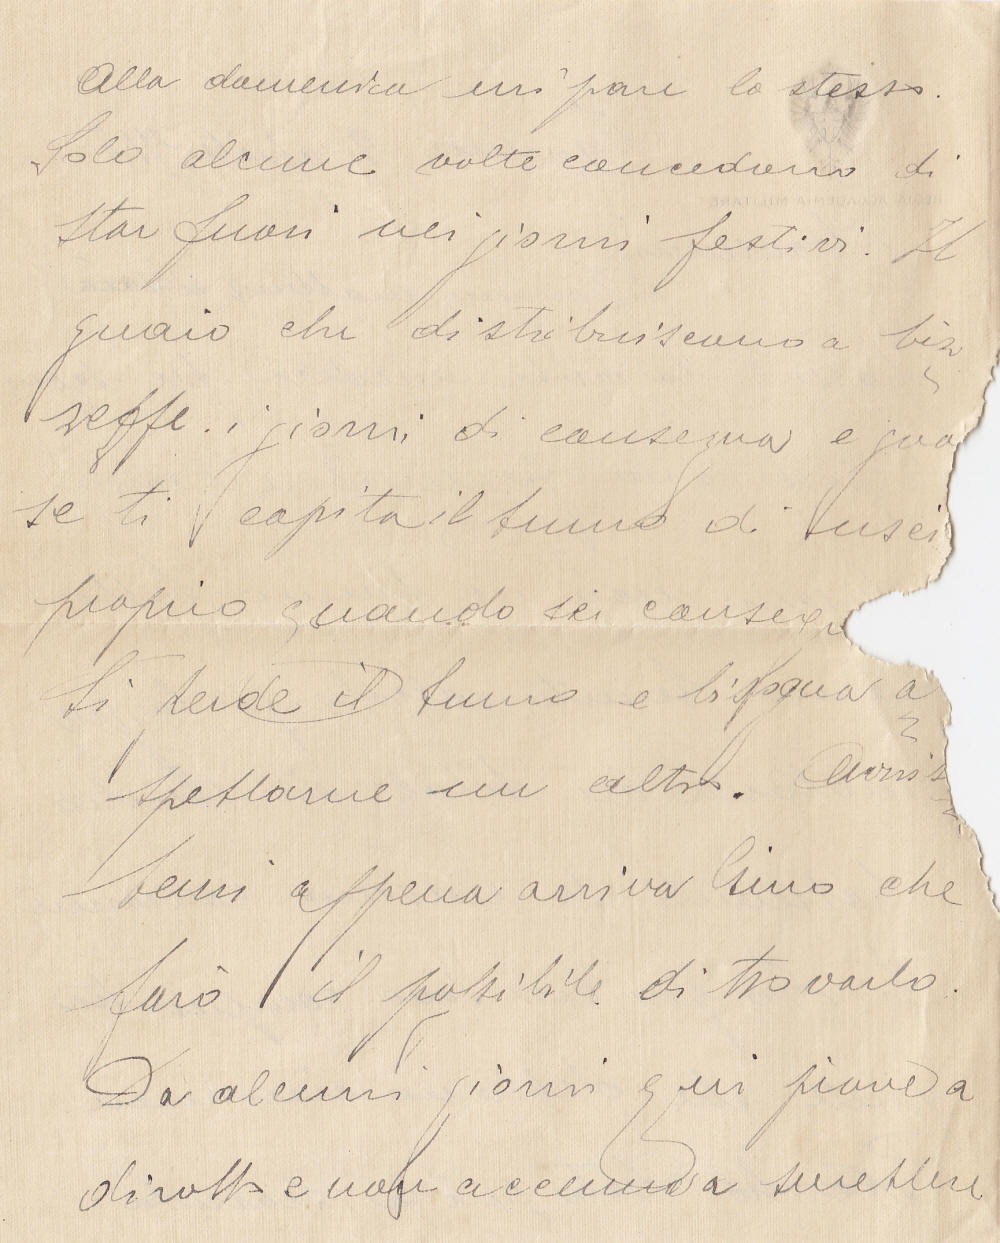 Alla domenica mi pare lo stesso.
Solo alcune volte concedono di
star fuori nei giorni festivi. Il
guaio che distribuiscono a biz
zeffe i giorni di consegna e gua
se ti capita il turno di usci
proprio quando sei consegn
Si perde il turno e bisogna a
spettarne un altro. Avvis
temi appena arriva Gino che
farò il possibile di trovarlo.
Da alcuni giorni qui piove a
dirotto e non accenna a smettere
REGIA ACCADEMIA MILITARE